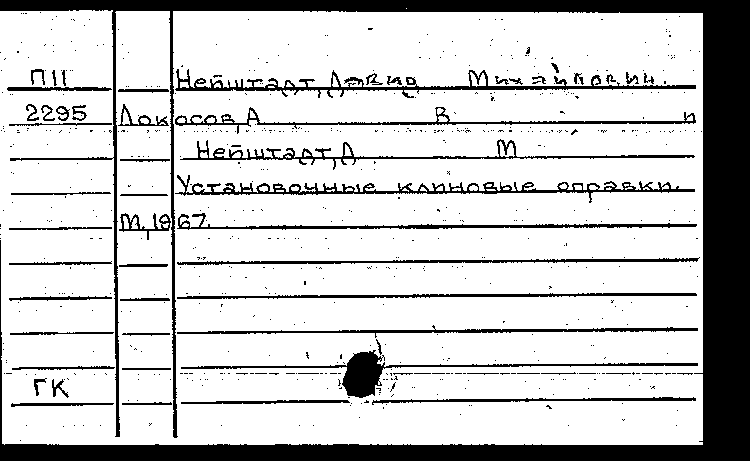 П11 Нейштадт, Давид Михайлович.
2295 Локосов, А В и
Нейштадт, Д М
Установочные клиновые оправки.
М., 1967.
ГК